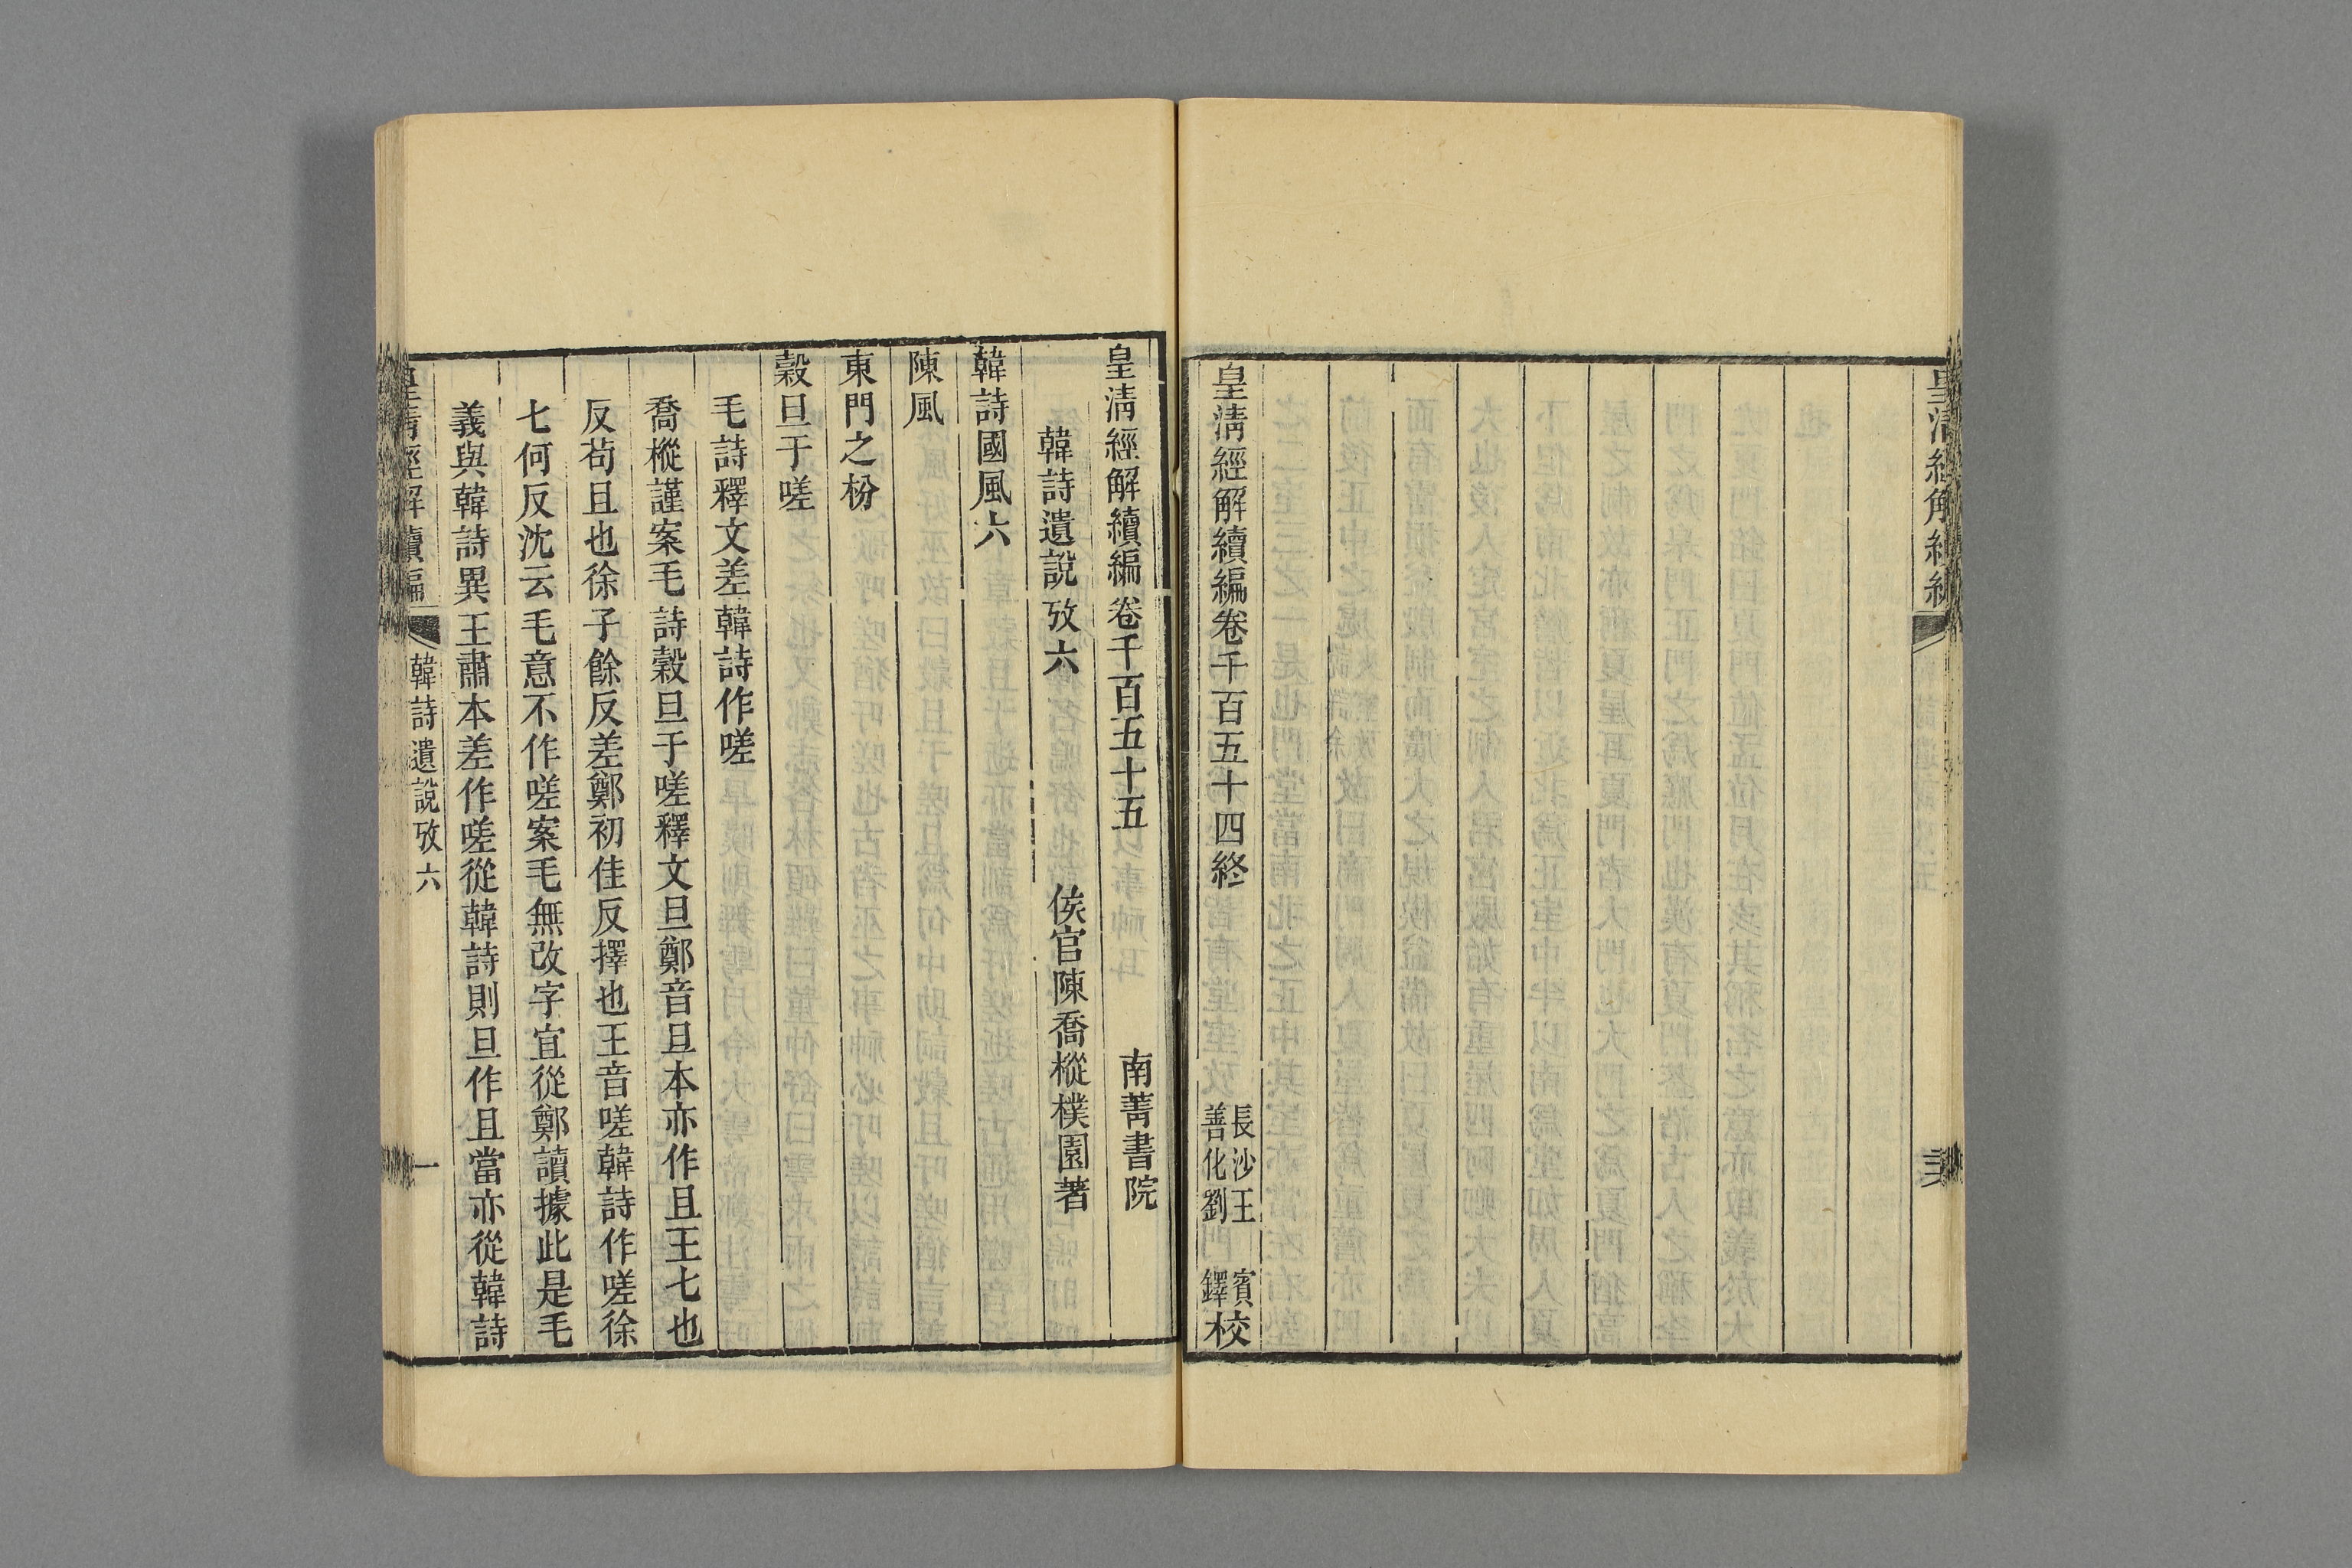 皇清經解續編卷千百五十四終
長沙王
善化劉
賓
鐸
校
皇清經解續編卷千百五十五 南菁書院
韓詩遺說攷六 侯官陳喬樅樸園著
韓詩國風六
陳風
東門之枌
穀旦于嗟
毛詩釋文差韓詩作嗟
喬樅謹案毛詩穀旦于嗟釋文旦鄭音旦本亦作且王七也
反苟且也徐子餘反差鄭初佳反擇也王音嗟韓詩作嗟徐
七何反沈云毛意不作嗟案毛無改字宜從鄭讀據此是毛
義與韓詩異王肅本差作嗟從韓詩則旦作且當亦從韓詩
皇清經解續編 韓詩遺說攷六 一